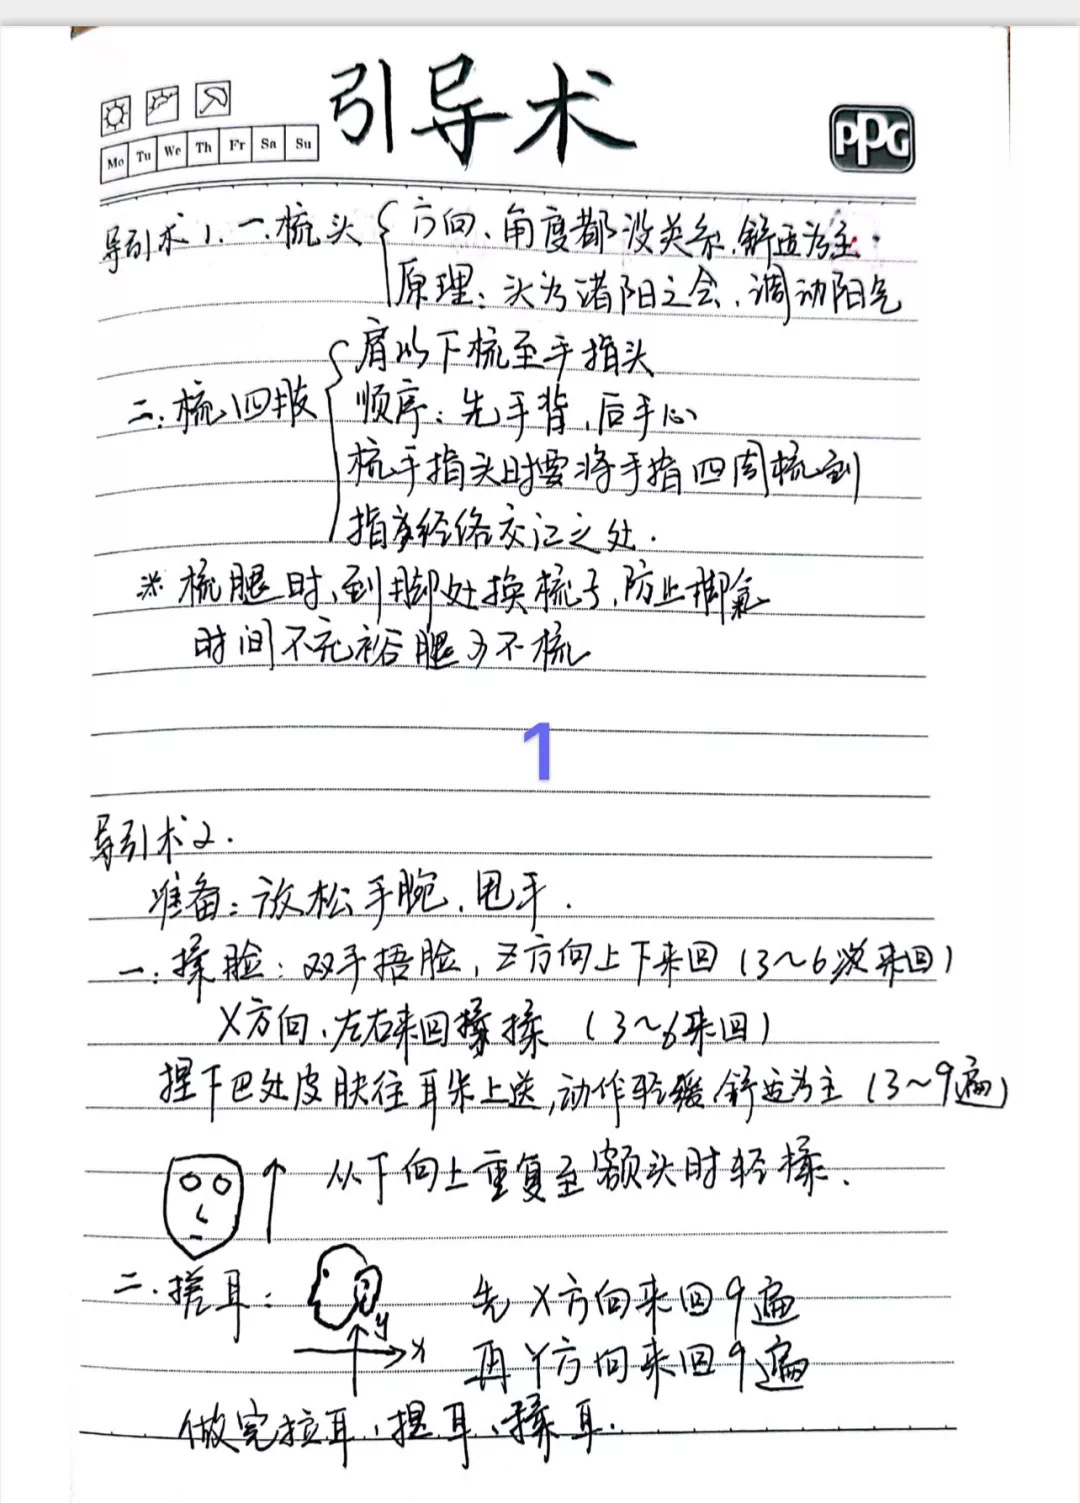 引导术
Mo Tu We Th Fr Sa Su
PPG
导引术1.一.梳头{方向、角度都没关系.舒适为主.
原理:头为诸阳之会.调动阳气
肩以下梳至手指头
二:梳四肢 顺序:先手背,后手心
梳手指头时要将手指四周梳到
指为经络交汇之处.
※ 梳腿时、到脚处换梳子,防止脚氣
时间不充裕腿可不梳
1
导引术2.
准备:放松手腕.甩手.
一:揉脸:双手捂脸,Z方向上下来回(3~6次来回)
X方向、左右来回揉揉(3~6来回)
捏下巴处皮肤往耳朵上送,动作轻缓,舒适为主(3~9遍)
从下向上重复至额头时轻揉.
二.搓耳: 先X方向来回9遍
y
x
再Y方向来回9遍
做完拉耳、捏耳、揉耳.